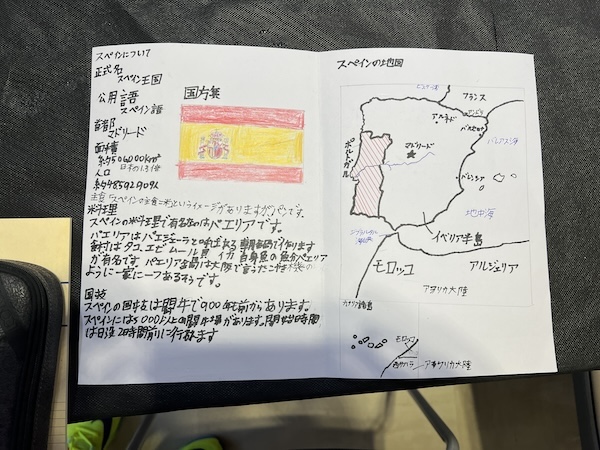 スペインについて
正式名
スペイン王国
公用語
スペイン語
首都
マドリード
面積
約506000km²
日本の1.3倍
人口
約48592909人
国旗
主食 「スペインの主食=米」というイメージがありますがパンです。
料理
スペインの料理で有名なのはパエリアです。
パエリアはパエジェーラと呼ばれる専用鍋で作ります
具材はタコ、エビ ムール貝 イカ 白身魚の魚介パエリア
が有名です パエリア鍋は大阪で言うたこやき機の
ように一家に一つあるそうです。
国技
スペインの国技は闘牛で900年前からあります。
スペインには5000以上の闘牛場があります。開始時間
は日没2時間前に行われます
スペインの地図
フランス
マドリード
バルセロナ
バレンシア
ポルトガル
地中海
イベリア半島
モロッコ
アルジェリア
アフリカ大陸
カナリア諸島
モロッコ
西サハラ
アフリカ大陸